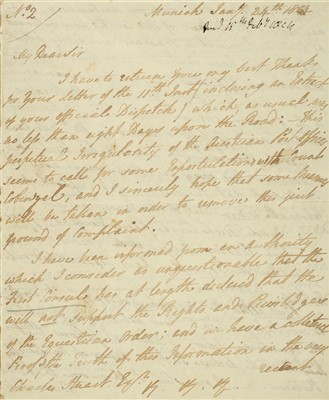 No. 2
Munich Jany. 29th 1804
My Dear Sir
I have to return you my best Thanks
for your letter of the 11th Inst, inclosing an Extract
of your official Dispatch, which as usual was
no less than eight Days upon the Road: This
perpetual Irregularity of the Austrian Post Office
seems to call for some Expostulation with Count
Cobenzel, and I sincerely hope that some Means
will be taken in order to remove this just
ground of Complaint.
I have been informed from an authority
which I consider as unquestionable that the
First Consul has at length declared that he
will not support the Rights and Privileges
of the Equestrian Order; and we have a
Proof of the Truth of this Information in the very
recent
Charles Stuart Esqr.